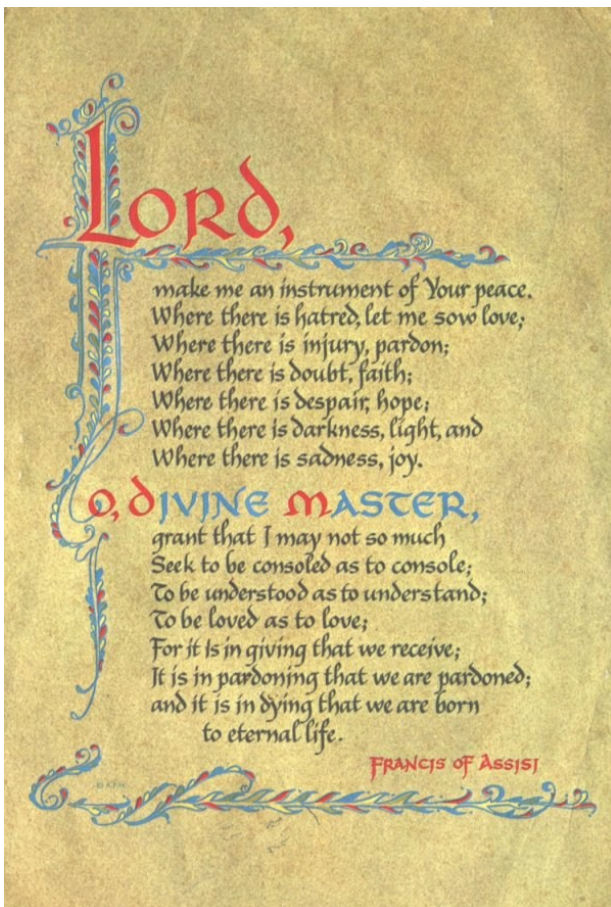 Lord,
make me an instrument of Your peace.
Where there is hatred, let me sow love;
Where there is injury, pardon;
Where there is doubt, faith;
Where there is despair, hope;
Where there is darkness, light, and
Where there is sadness, joy.
O, Divine Master,
grant that I may not so much
Seek to be consoled as to console;
To be understood as to understand;
To be loved as to love;
For it is in giving that we receive;
It is in pardoning that we are pardoned;
and it is in dying that we are born
to eternal life.
Francis of Assisi